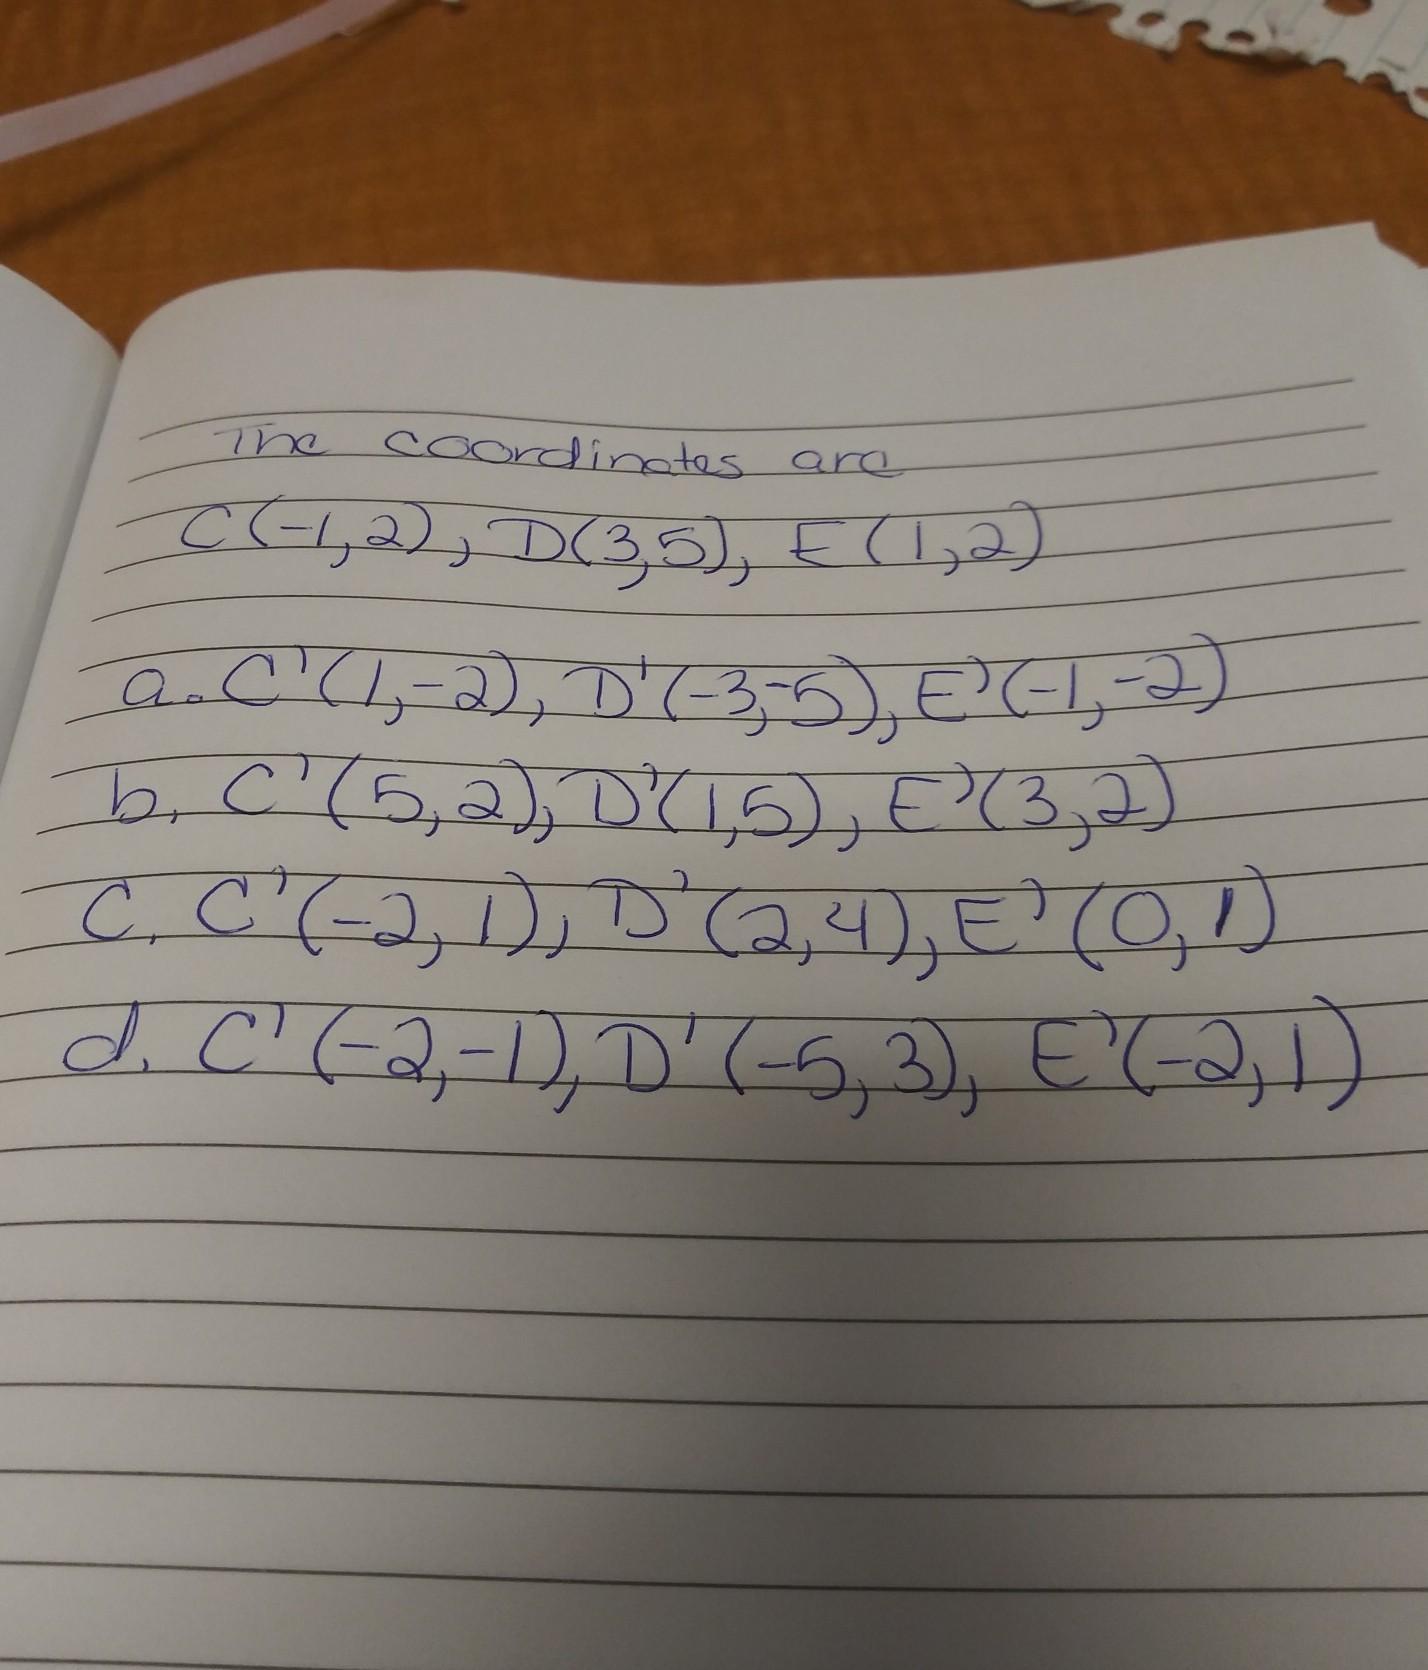 The coordinates are
C(-1,2), D(3,5), E(1,2)
a. C'(1,-2), D'(-3,-5), E'(-1,-2)
b. C'(5,2), D'(1,5), E'(3,2)
C. C'(-2,1), D'(2,4), E'(0,1)
d. C'(-2,-1), D'(-5,3), E'(-2,1)